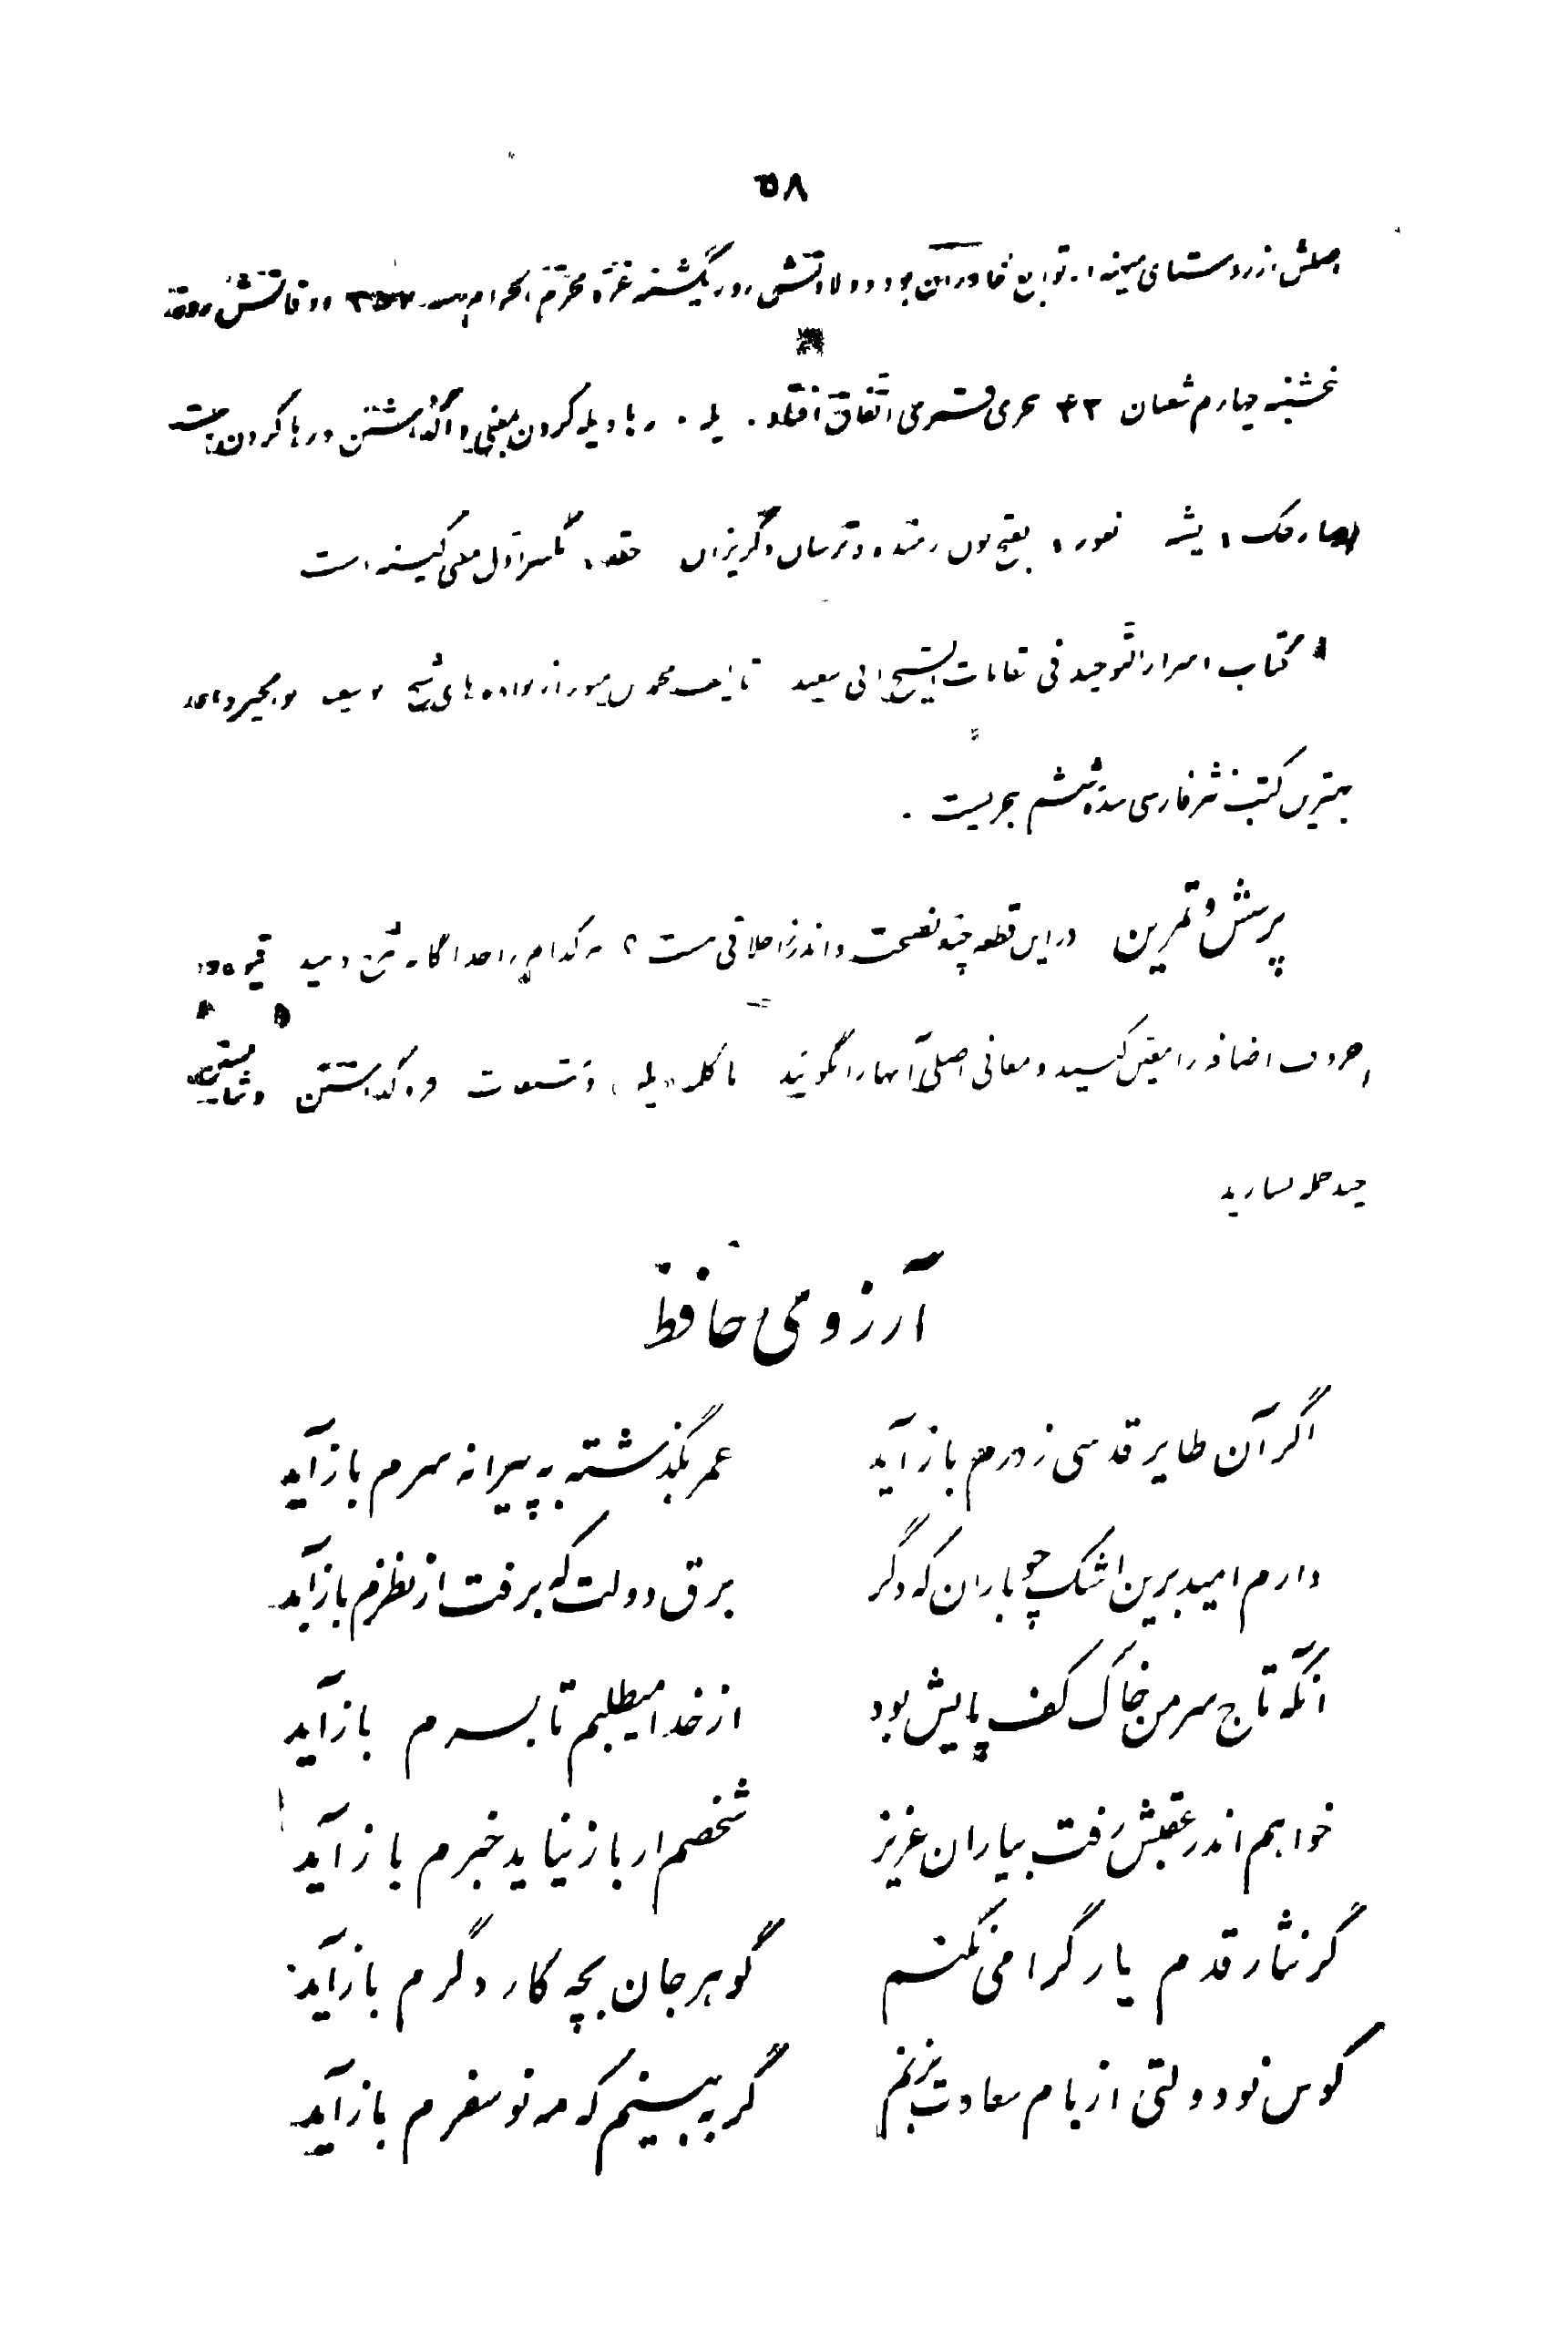 ۵۸
اصلش از روستای میهنه از توابع خاوران بود و ولادتش روز یکشنبه غرّه محرّم الحرام سنه ۳۵۷ و وفاتش
پنجشنبه چهارم شعبان هجری قمری اتّفاق افتاد . یله . رها و یله کردن بمعنی واگذاشتن و رها کردن
نفور ، بفتح نون رمنده و ترسان و گریزان حقد ، بکسر اوّل بمعنی کینه است
کتاب اسرار التّوحید فی مقامات الشیخ ابی سعید تألیف محمد بن منور از نواده‌های شیخ
بهترین کتب نثر فارسی سدهٔ ششم هجریست .
پرسش و تمرین در این قطعه چند نصیحت و اندرز اخلاقی هست ؟ هر کدام را جداگانه شرح دهید
حروف اضافه را معین کنید و معانی اصلی آنها را بگویید با کلمه «یله» و مشتقات فروگذاشتن
چند جمله بسازید
آرزوی حافظ
اگر آن طایر قدسی ز درم باز آید عمر بگذشته به پیرانه سرم باز آید
دارم امید برین اشک چو باران که دگر برق دولت که برفت از نظرم باز آید
آنکه تاج سر من خاک کف پایش بود از خدا میطلبم تا بسرم باز آید
خواهم اندر عقبش رفت بیاران عزیز شخصم ار باز نیاید خبرم باز آید
گر نثار قدم یار گرامی نکنم گوهر جان بچه کار دگرم باز آید
کوس نو دولتی از بام سعادت بزنم گر به بینم که مه نو سفرم باز آید